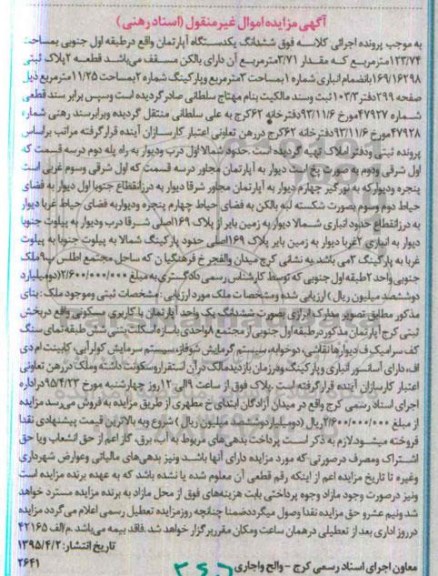 آگهی مزایده اموال غیر منقول (اسناد رهنی)
به موجب پرونده اجرائی کلاسه فوق ششدانگ یکدستگاه آپارتمان واقع درطبقه اول جنوبی بمساحت
۱۲۳/۷۴مترمربع که مقدار ۳/۷۱مترمربع آن دارای بالکن مسقف می‌باشد قطعه ۲پلاک ثبتی
۱۶۹/۱۶۲۹۸بانضمام انباری شماره ۱بمساحت ۳مترمربع وپارکینگ شماره ۲بمساحت ۱۱/۲۵مترمربع ذیل
صفحه ۲۹۹دفتر۱۰۳/۳ثبت وسند مالکیت بنام مهتاج سلطانی صادر گردیده است وسپس برابر سند قطعی
شماره ۴۷۹۲۷مورخ ۹۳/۱۱/۶دفترخانه ۶۲کرج به علی سلطانی منتقل گردیده وبرابرسند رهنی شماره
۴۷۹۲۸مورخ ۹۳/۱۱/۶دفترخانه ۶۲کرج دررهن تعاونی اعتبار کارسازان آینده قرارگرفته مراتب براساس
پرونده ثبتی ودفتر املاک تهیه گردیده است .حدود شمالا اول درب ودیوار به راه پله دوم درسه قسمت که
اول شرقی ودوم به صورت پخ است دیوار به آپارتمان مجاور درسه قسمت که اول شرقی وسوم غربی است
پنجره ودیوارکه به نورگیر چهارم دیوار به آپارتمان مجاور شرقا دیوار به درزانقطاع جنوبا اول دیوار به فضای
حیاط دوم سوم بصورت شکسته لبه بالکن به فضای حیاط چهارم پنجره ودیوار به فضای حیاط غربا دیوار
به درزانقطاع حدود انباری شمالا دیوار به زمین بایر از پلاک ۱۶۹اصلی شرقا درب ودیوار به پیلوت جنوبا
دیوار به انباری ۲غربا دیوار به زمین بایر پلاک ۱۶۹اصلی حدود پارکینگ شمالا به پیلوت جنوبا به پیلوت
غربا به پارکینگ ۳می باشد به نشانی کرج میدان والفجر خ فرهنگیان که ساحل مجتمع اطلس پ۹ملک
جنوبی واحد ۲طبقه اول جنوبی که توسط کارشناس رسمی دادگستری به مبلغ ۲/۶۰۰/۰۰۰/۰۰۰(دومیلیارد
وششصد میلیون ریال ) ارزیابی شده ومشخصات ملک مورد ارزیابی : مشخصات ثبتی وموجود ملک : بنای
مذکور مطابق تصویر مدارک ابرازی بصورت ششدانگ یک واحد آپارتمان با کاربری مسکونی واقع دربخش
ثبتی کرج آپارتمان مذکور درطبقه اول جنوبی از مجتمع ۸واحدی باسازه اسکلت بتنی شش طبقه نمای سنگ
کف سرامیک ف دیوارها نقاشی، دوخوابه، سیستم گرمایش شوفاژ، سیستم سرمایش کولرآبی، کابینت ام دی
اف، دارای آسانسور انباری وپارکینگ ودرزمان بازدید مالک درآن استقرار وسکونت داشته وملک دررهن تعاونی
اعتبار کارسازان آینده قرارگرفته است .پلاک فوق از ساعت ۹الی ۱۲روز چهارشنبه مورخ ۹۵/۴/۲۳دراداره
اجرای اسناد رسمی کرج واقع در میدان آزادگان ابتدای خ مطهری از طریق مزایده به فروش می‌رسد مزایده
از مبلغ ۲/۶۰۰/۰۰۰/۰۰۰ریال (دومیلیاردوششصد میلیون ریال ) شروع وبه بالاترین قیمت پیشنهادی نقدا
فروخته میشود.لازم به ذکر است پرداخت بدهی‌های مربوط به آب، برق، گاز اعم از حق انشعاب ویا حق
اشتراک ومصرف درصورتی که مورد مزایده دارای آنها باشد ونیز بدهی‌های مالیاتی وعوارض شهرداری
وغیره تا تاریخ مزایده اعم از اینکه رقم قطعی آن معلوم شده یا نشده باشد که به عهده برنده مزایده است
ونیز درصورت وجود مازاد وجوه پرداختی بابت هزینه‌های فوق از محل مازاد به برنده مزایده مسترد خواهد
شد ونیم عشرو حق مزایده نقدا وصول میگردد.ضمنا چنانچه روزمزایده تعطیل رسمی اعلام می‌گردد مزایده
درروز اداری بعد از تعطیلی درهمان ساعت ومکان مقرربرگزار خواهد شد.فاقد بیمه می‌باشد .م/الف ۴۲۱۶۵
تاریخ انتشار: ۱۳۹۵/۴/۲
معاون اجرای اسناد رسمی کرج - والح واجاری
۳۶۴۱